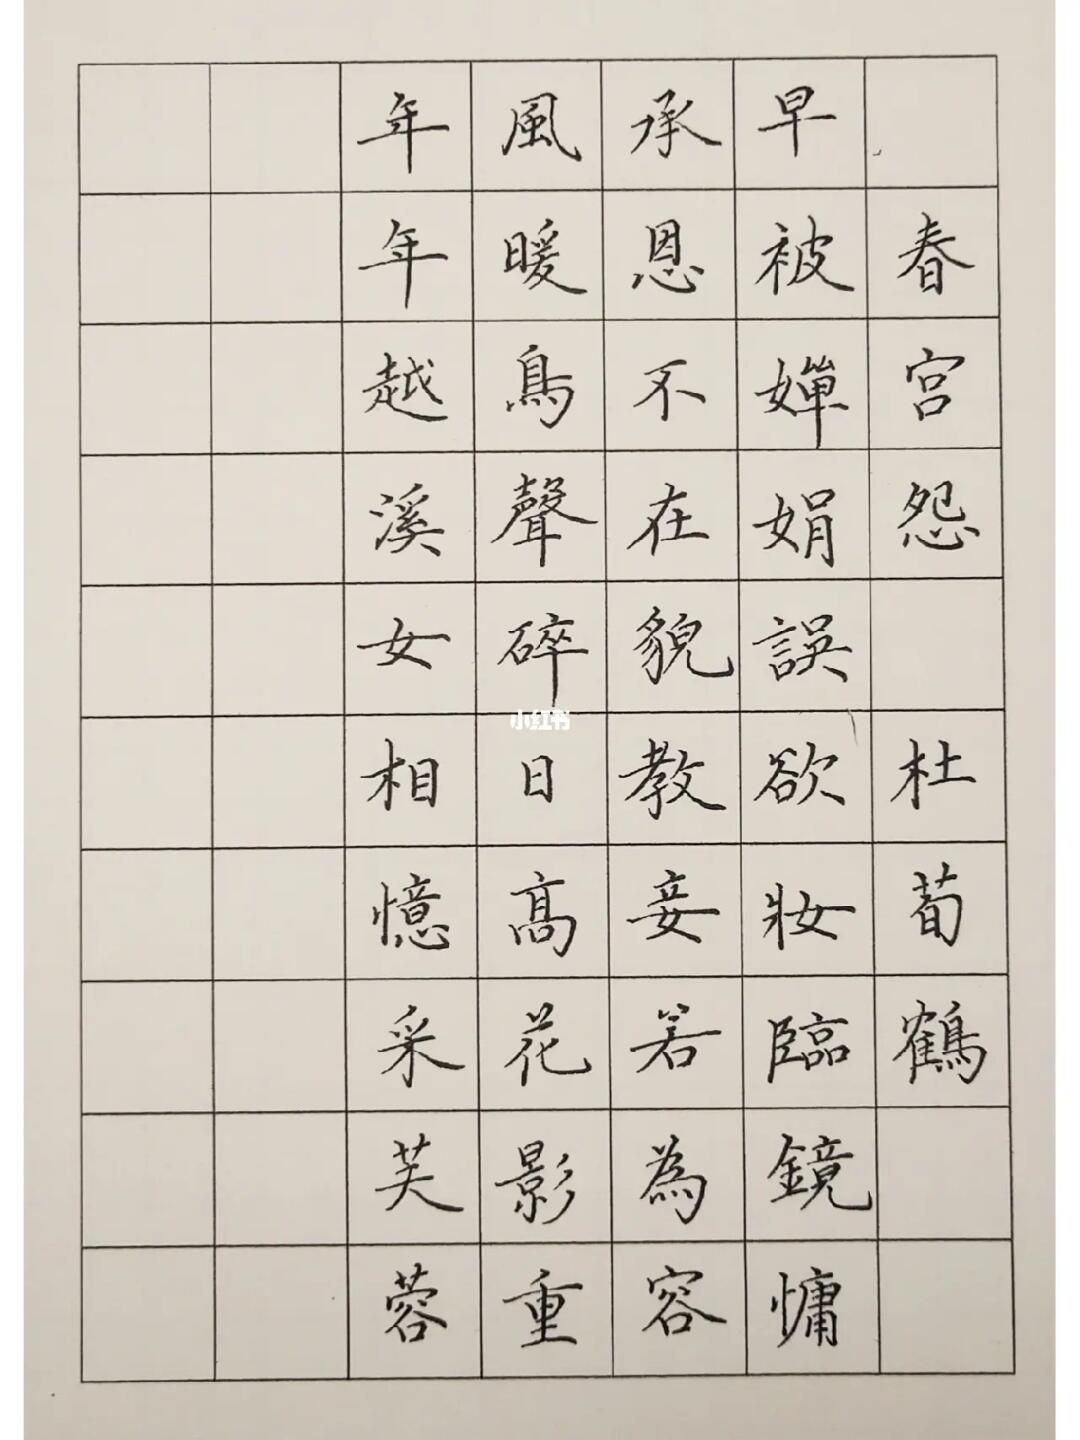 春宮怨 杜荀鶴
早被嬋娟誤欲妝臨鏡慵
承恩不在貌教妾若為容
風暖鳥聲碎日高花影重
年年越溪女相憶采芙蓉
小红书